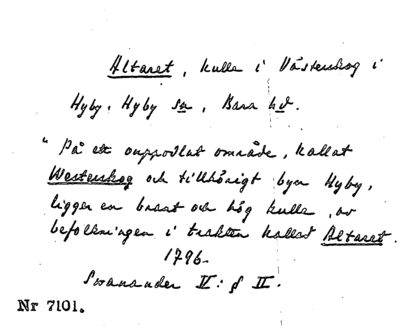 Altaret, kulle i Västerskog i
Hyby, Hyby sn, Bara hd.
"På ett ouppodlat område, kallat
Westerskog och tillhörigt byn Hyby,
ligger en brant och hög kulle, av
befolkningen i trakten kallat Altaret.
1796.
Svanander IV: § II.
Nr 7101.